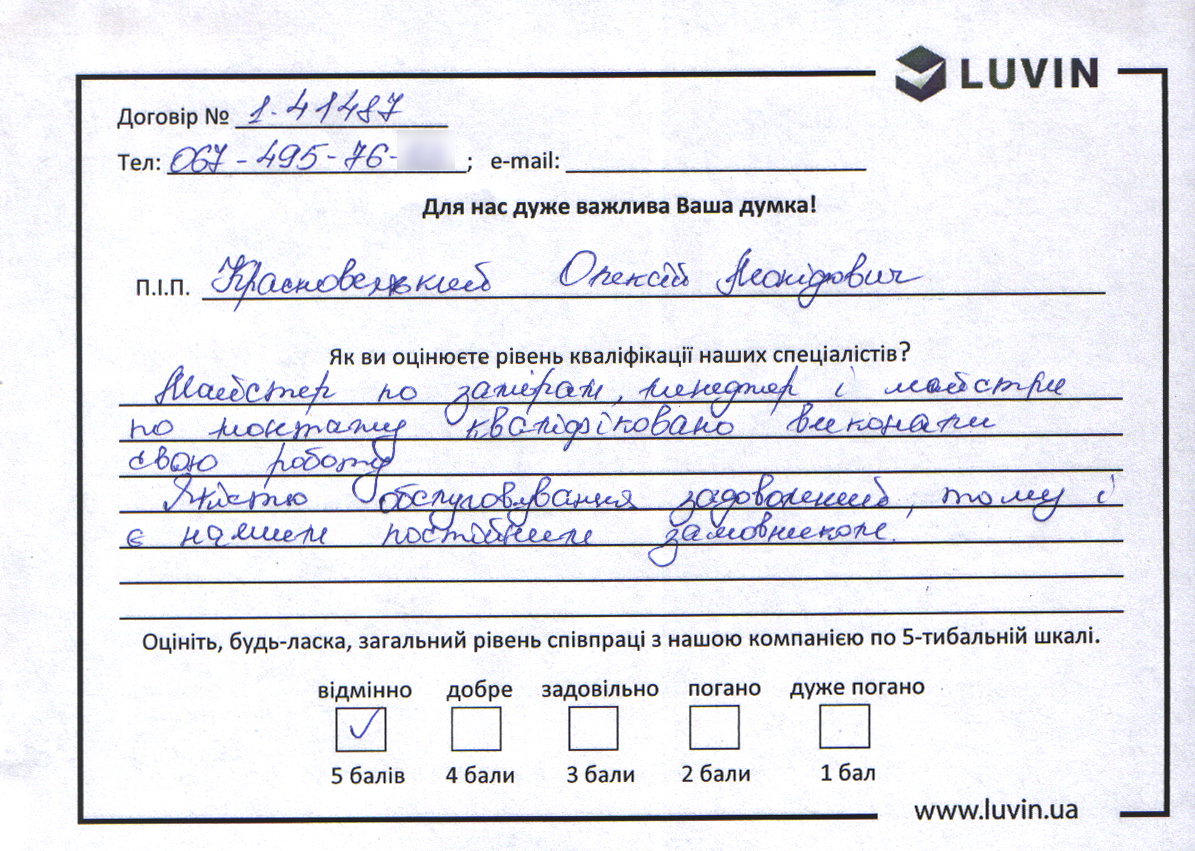 LUVIN
Договір № 1-41487
Тел: 067-495-76- ; e-mail:
Для нас дуже важлива Ваша думка!
П.І.П. Олексій Леонідович
Як ви оцінюєте рівень кваліфікації наших спеціалістів?
Майстер по замірам, менеджер і майстри
по монтажу кваліфіковано виконали
свою роботу
Якістю обслуговування задоволений, тому і
є нашим постійним замовником.
Оцініть, будь-ласка, загальний рівень співпраці з нашою компанією по 5-тибальній шкалі.
відмінно добре задовільно погано дуже погано
5 балів 4 бали 3 бали 2 бали 1 бал
www.luvin.ua